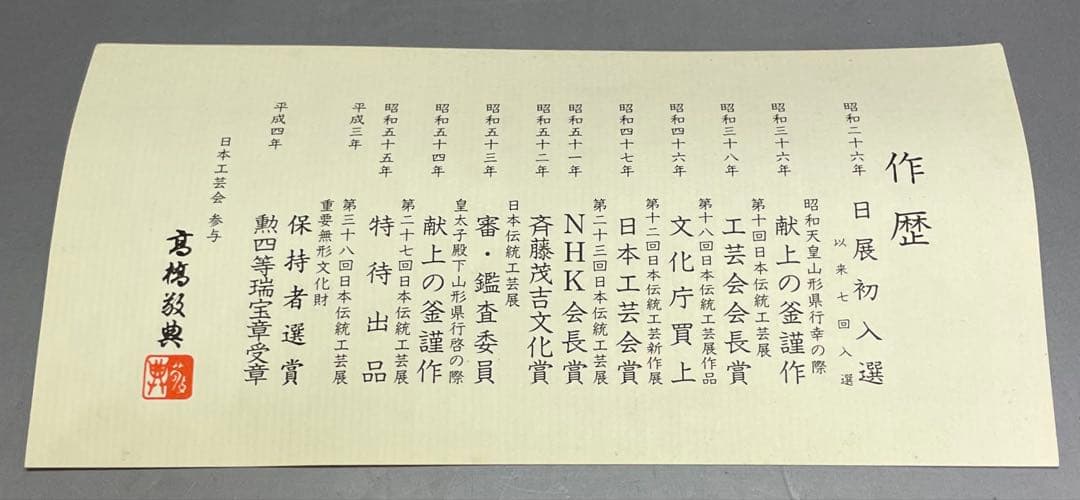 作歴
昭和二十六年 日展初入選
以来七回入選
昭和三十六年 昭和天皇山形県行幸の際
献上の釜謹作
昭和三十八年 第十回日本伝統工芸展
工芸会会長賞
昭和四十六年 第十八回日本伝統工芸展作品
文化庁買上
昭和四十七年 第十二回日本伝統工芸新作展
日本工芸会賞
昭和五十一年 第二十三回日本伝統工芸展
NHK会長賞
昭和五十二年 斉藤茂吉文化賞
昭和五十三年 日本伝統工芸展
審・鑑査委員
昭和五十四年 皇太子殿下山形県行啓の際
献上の釜謹作
昭和五十五年 第二十七回日本伝統工芸展
特待出品
平成三年 第三十八回日本伝統工芸展
重要無形文化財
保持者選賞
平成四年 勲四等瑞宝章受章
日本工芸会 参与
髙橋敬典
敬典